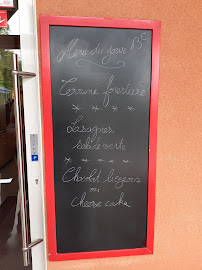 Menu du jour 13€
Terrine forestière
* * * *
Lasagnes
salade verte
* * * * *
Chocolat liégeois
ou
Cheese cake